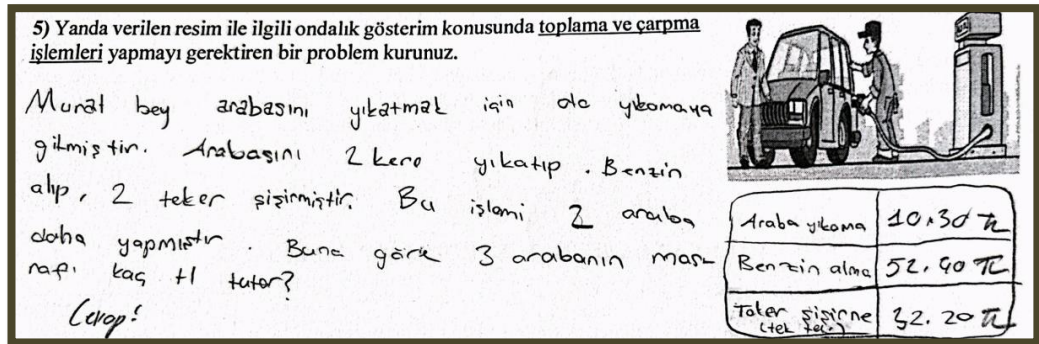 5) Yanda verilen resim ile ilgili ondalık gösterim konusunda toplama ve çarpma
işlemleri yapmayı gerektiren bir problem kurunuz.
Murat bey arabasını yıkatmak için oto yıkamaya
gitmiştir. Arabasını 2 kere yıkatıp. Benzin
alıp, 2 teker şişirmiştir. Bu işlemi 2 araba
daha yapmıştır. Buna göre 3 arabanın mas-
rafı kaç tl tutar?
Cevap:
Araba yıkama 10.30 TL
Benzin alma 52.40 TL
Teker şişirme 32.20 TL
(tek